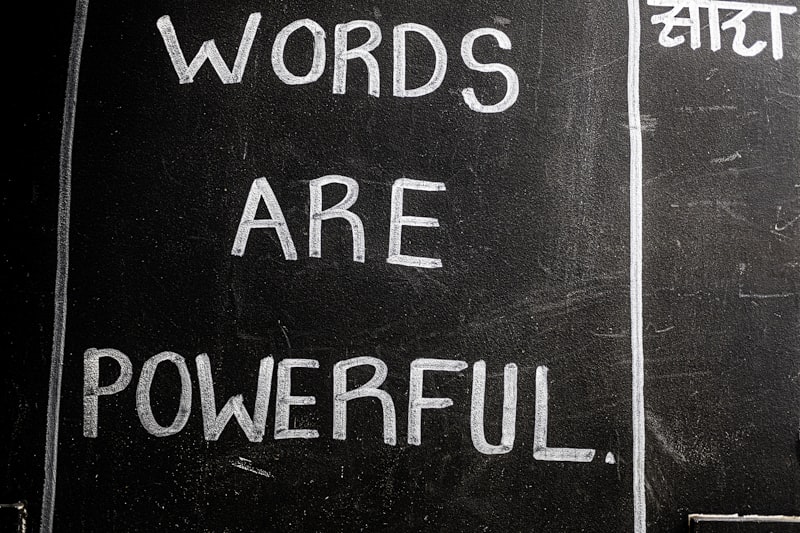 WORDS
ARE
POWERFUL.